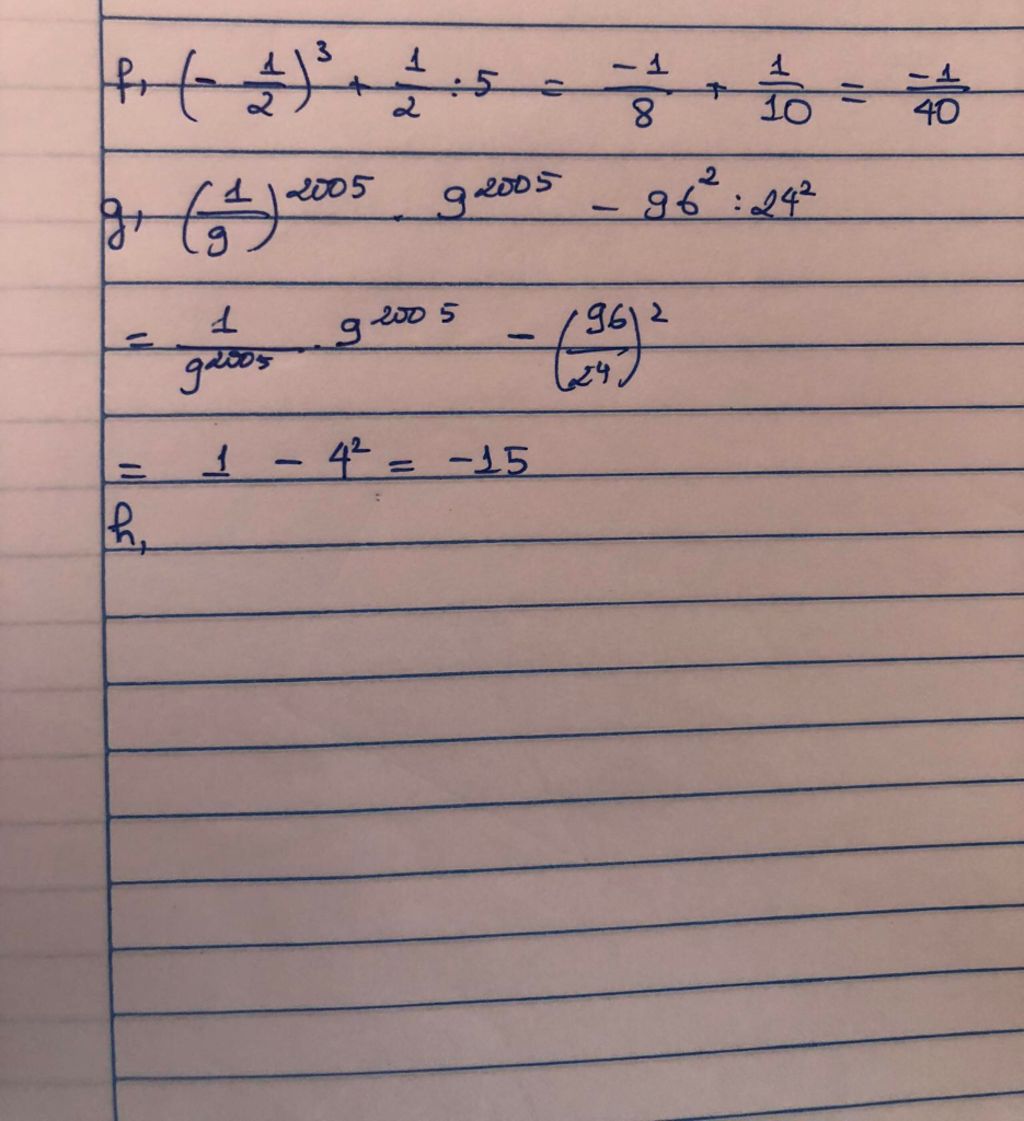 f, (-1/2)³ + 1/2 : 5 = -1/8 + 1/10 = -1/40
g, (1/9)²⁰⁰⁵ . 9²⁰⁰⁵ - 96² : 24²
= 1/9²⁰⁰⁵ . 9²⁰⁰⁵ - (96/24)²
= 1 - 4² = -15
h,